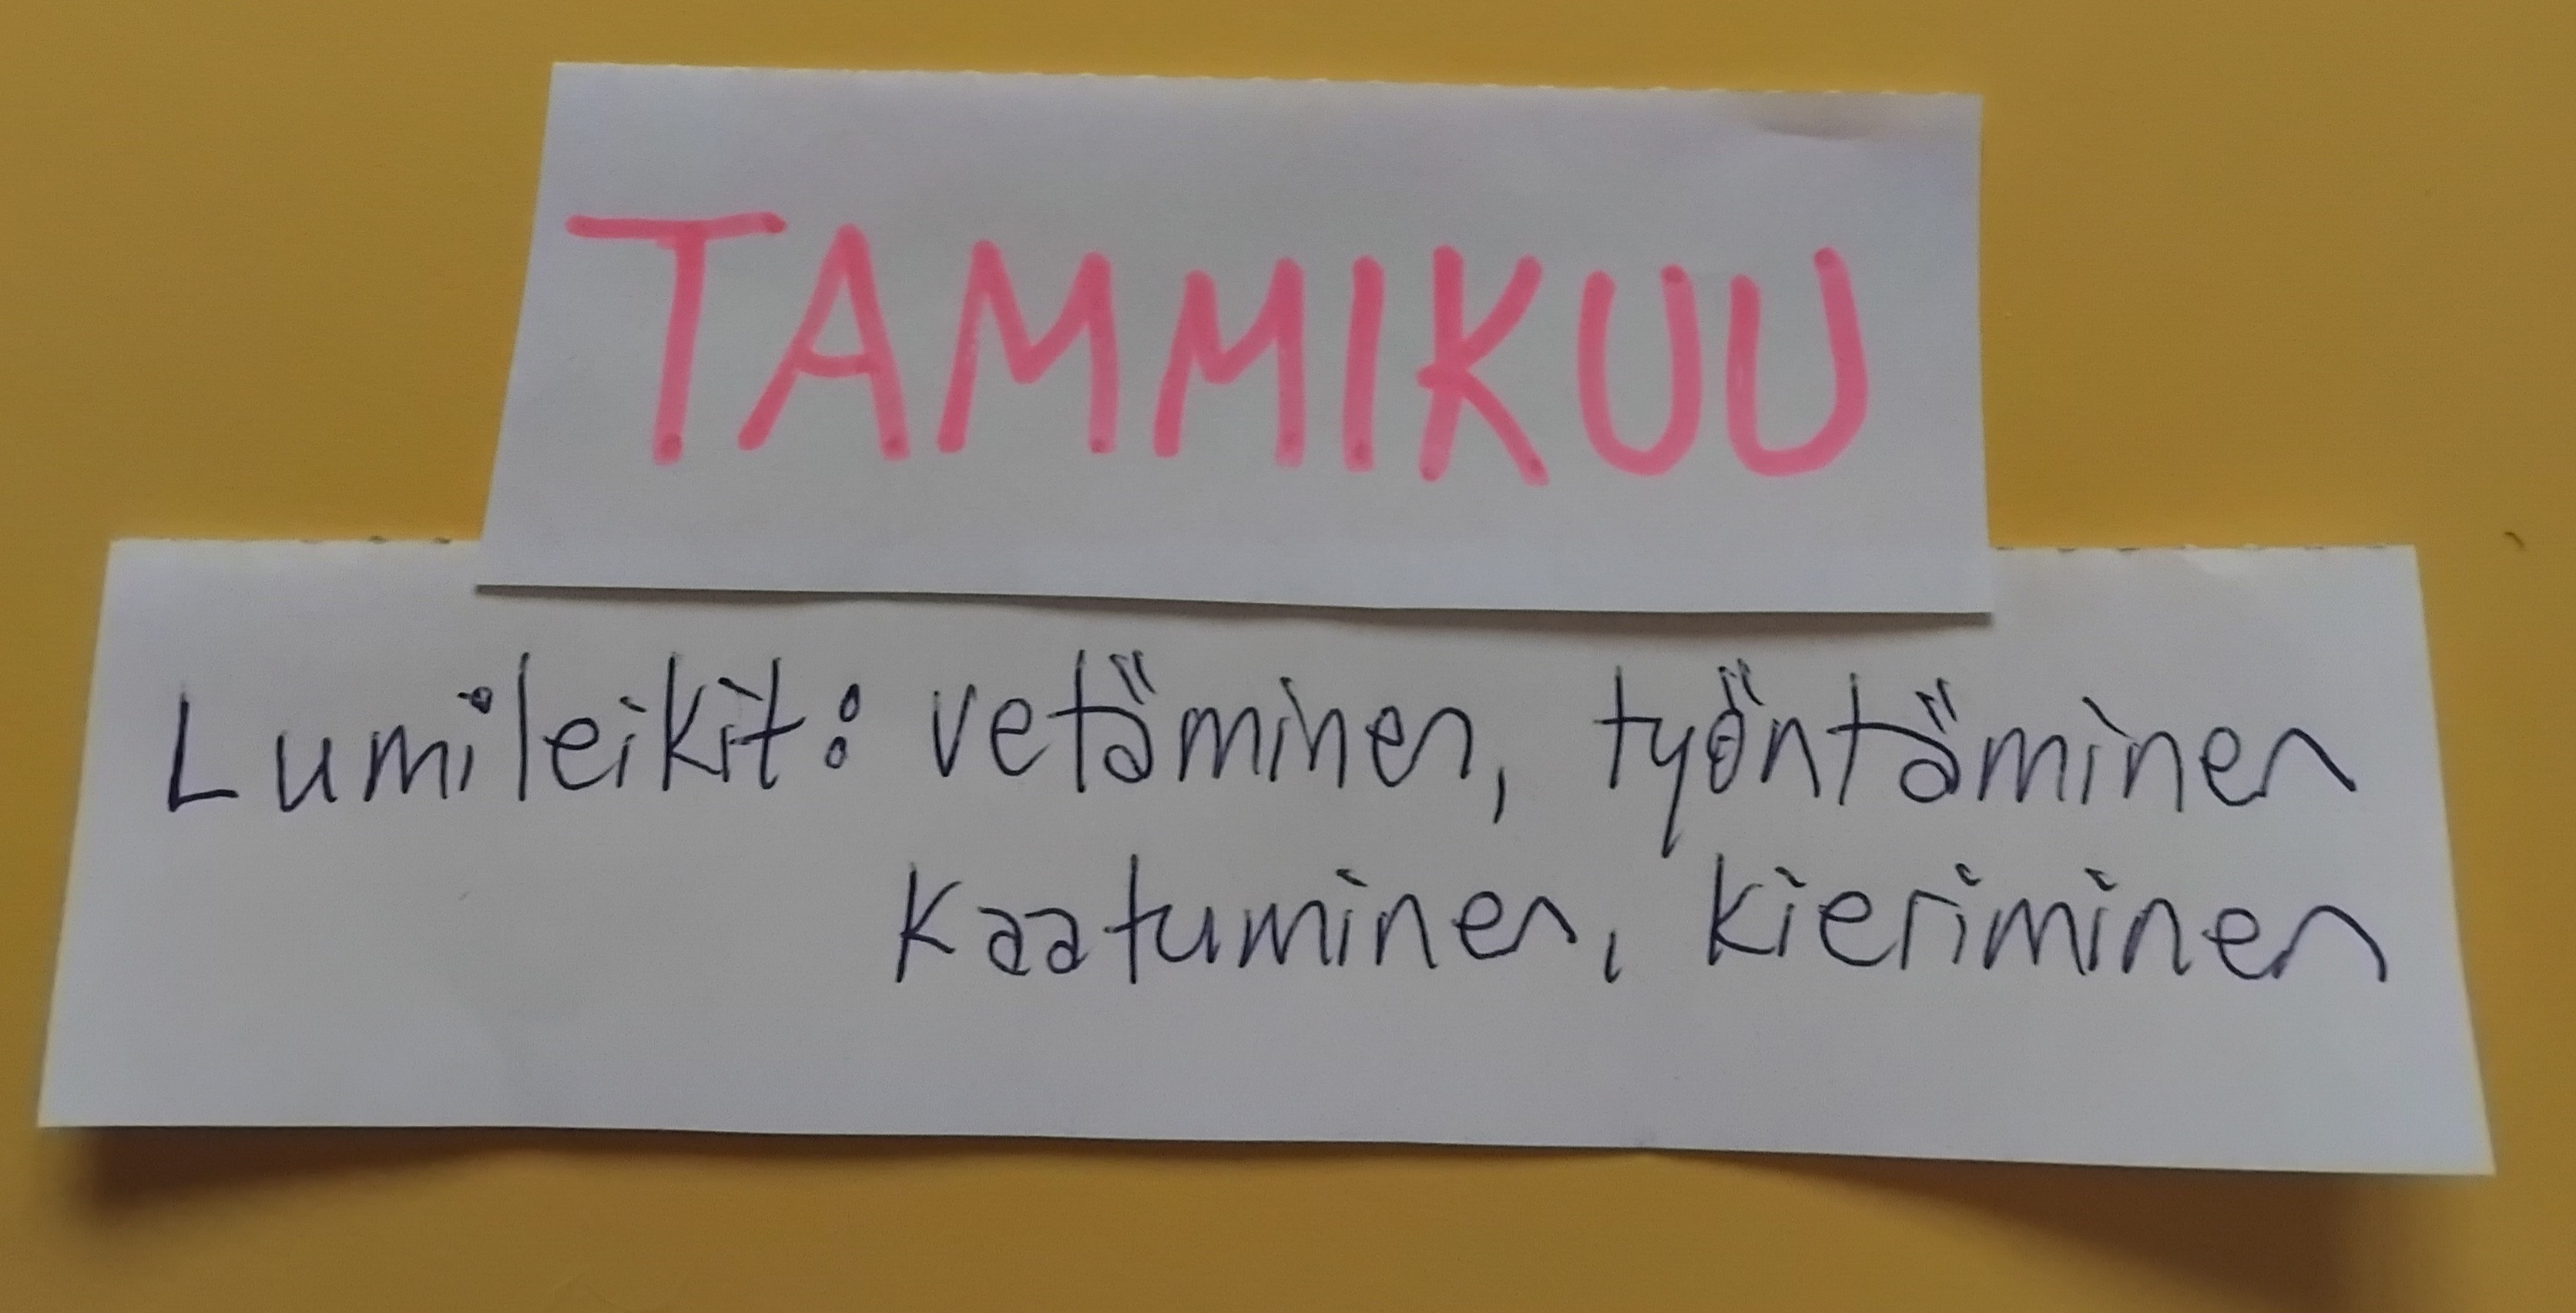 TAMMIKUU
Lumileikit: vetäminen, työntäminen
kaatuminen, kieriminen